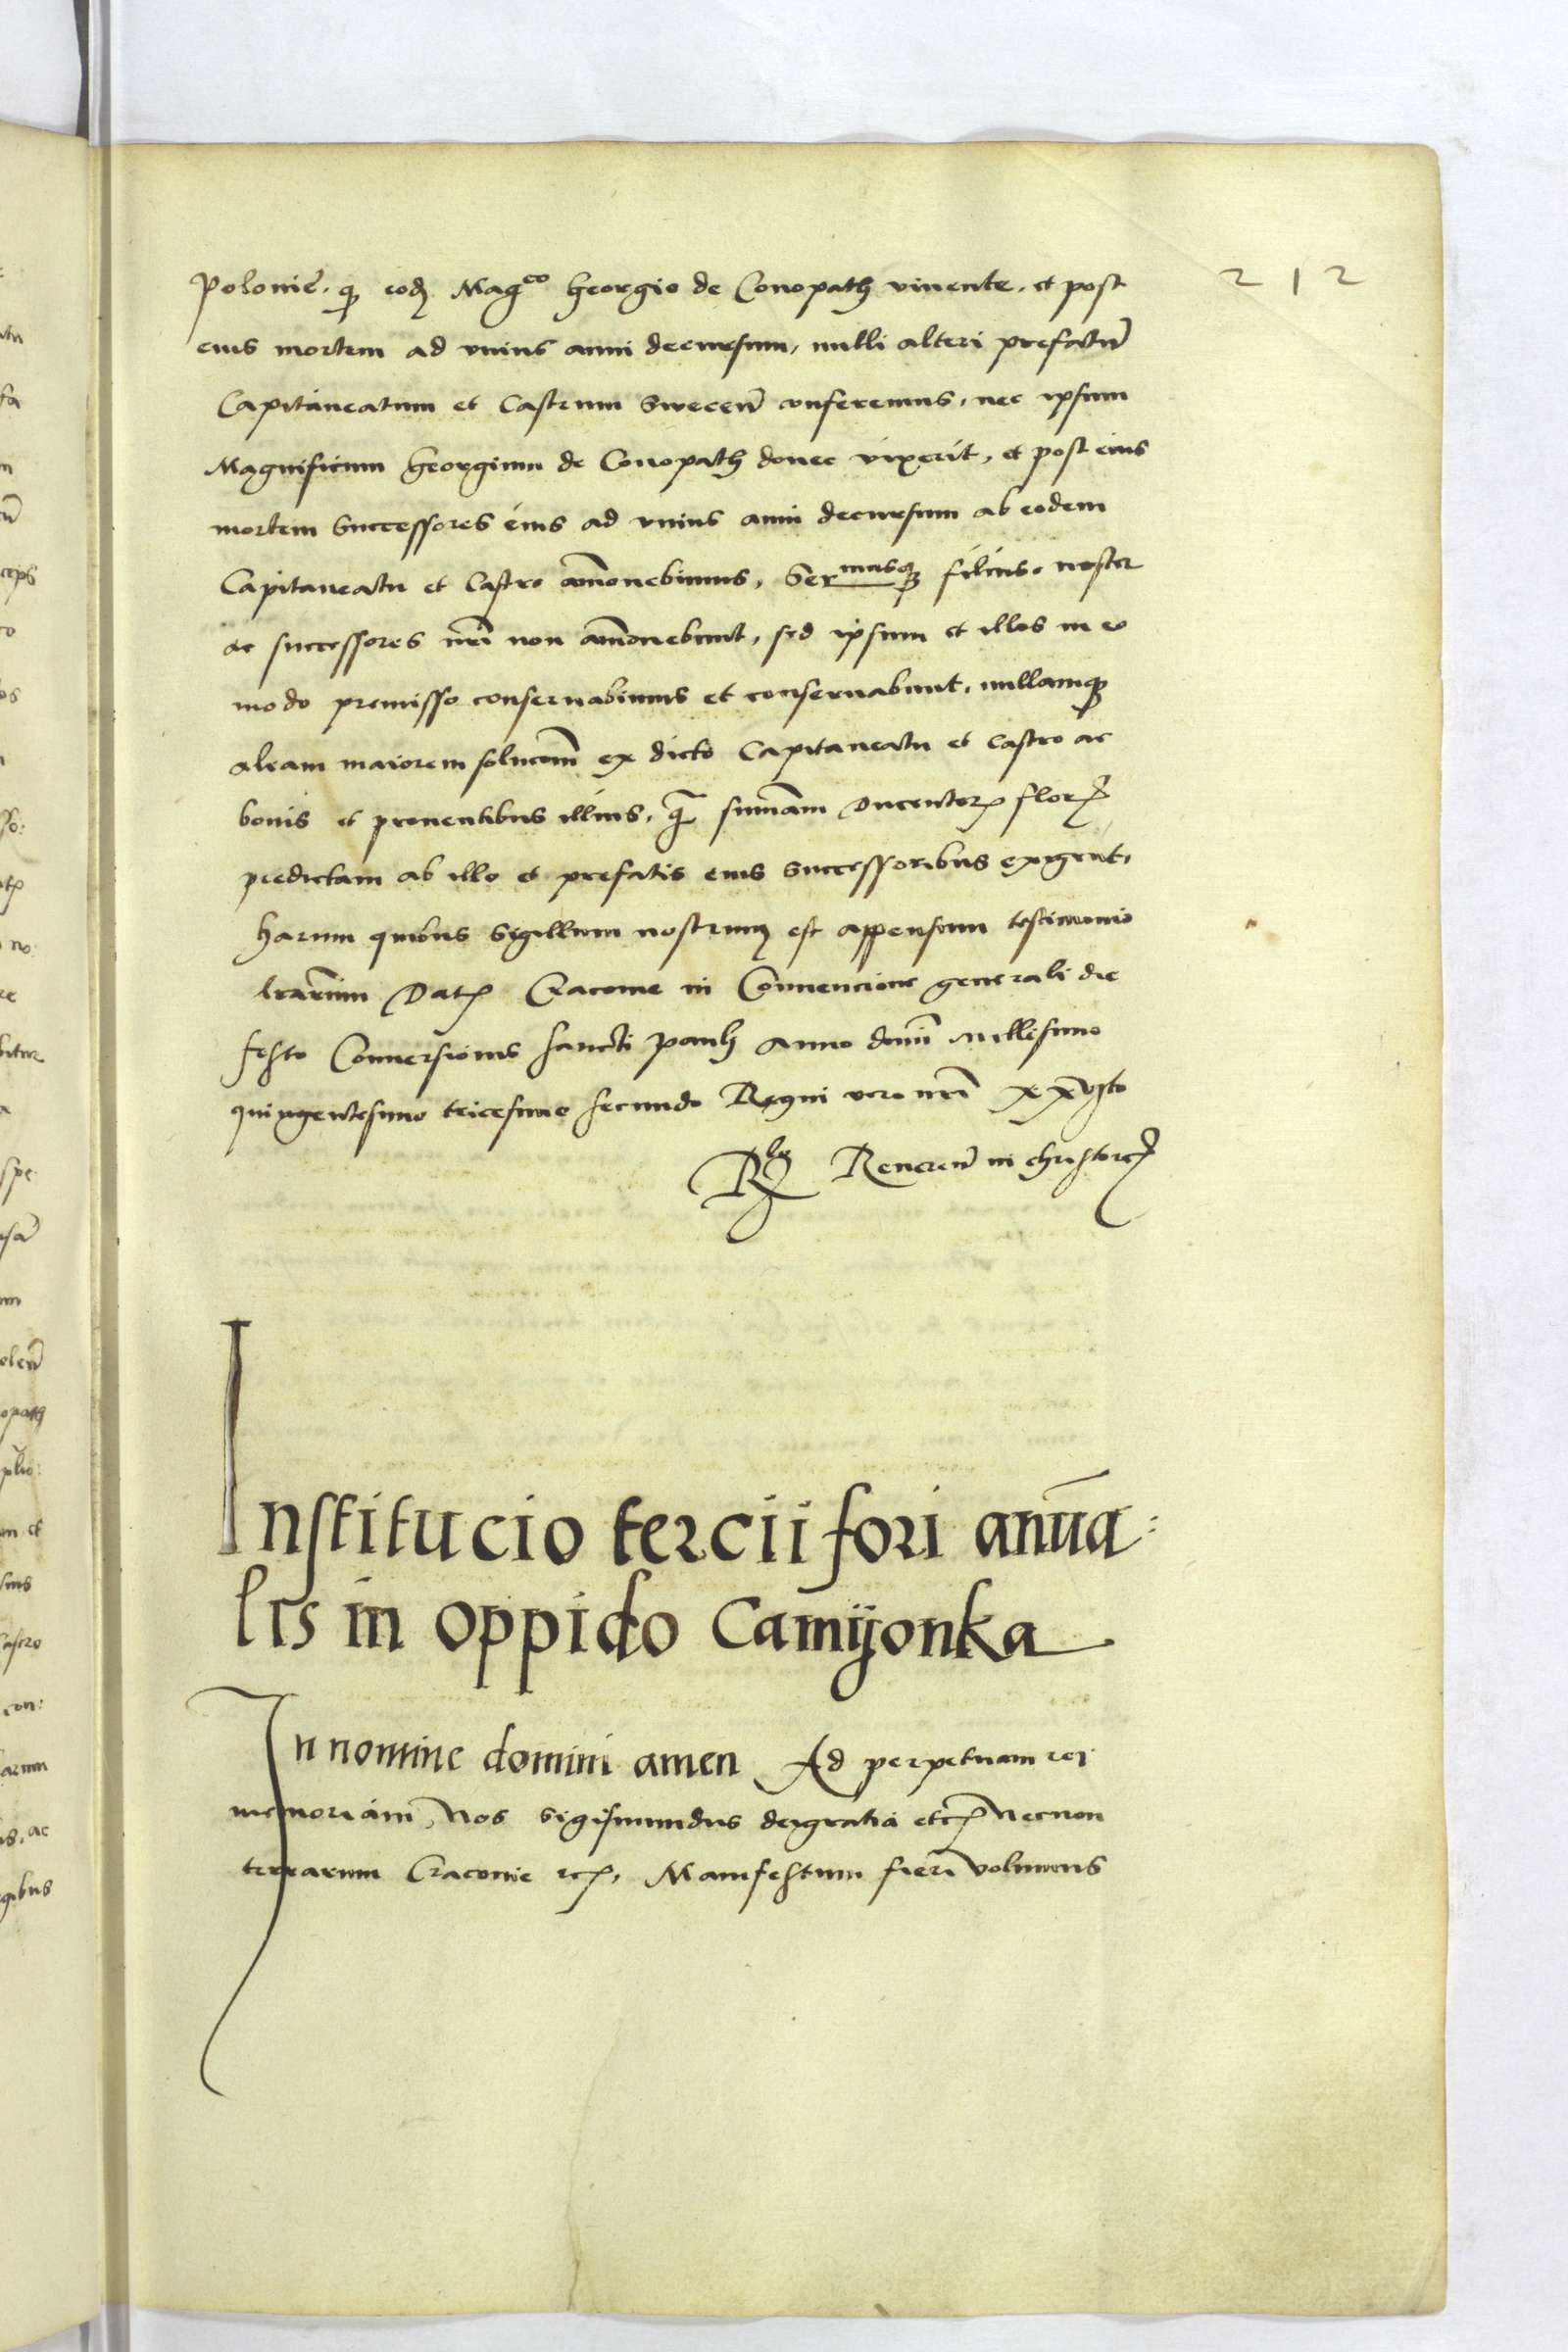 212
Polonie. q eod Mag^co Georgio de Conopath viuente, et post
eius mortem ad vnius anni decursum, nulli alteri prefatu̅
Capitaneatum et Castrum Swecen̅ conferemus, nec ipsum
Magnificum Georgium de Conopath donec vixerit, et post eius
mortem Successores eius ad vnius anni decursum ab eodem
Capitaneatu et Castro am̅onebimus, Ser^musq filius noster
ac successores nri̅ non am̅onebunt, sed ipsum et illos in eo
modo premisso conseruabimus et conseruabunt, nullamq
aliam maiorem solucom̅ ex dicto Capitaneatu et castro ac
bonis et prouentibus illius, q̅ sum̅am Ducentor flor
predictam ab illo et prefatis eius successoribus exigent,
harum quibus Sigillum nostrum est appensum testimonio
lrar̅um Dat Cracouie in Conuencione generali die
festo Conuersionis sancti Pauli Anno domi̅ millesimo
quingentesimo tricesimo secundo Regni vero nri̅ xxvjto
Rlo Reueren̅ in christo rc
Institucio tercii fori ann̅ua:
lis in oppido Camyonka
In nomine domini amen Ad perpetuam rei
memoriam, Nos Sigismundus dei gratia etc Necnon
terrarum Cracouie rc, Manifestum fieri volumus